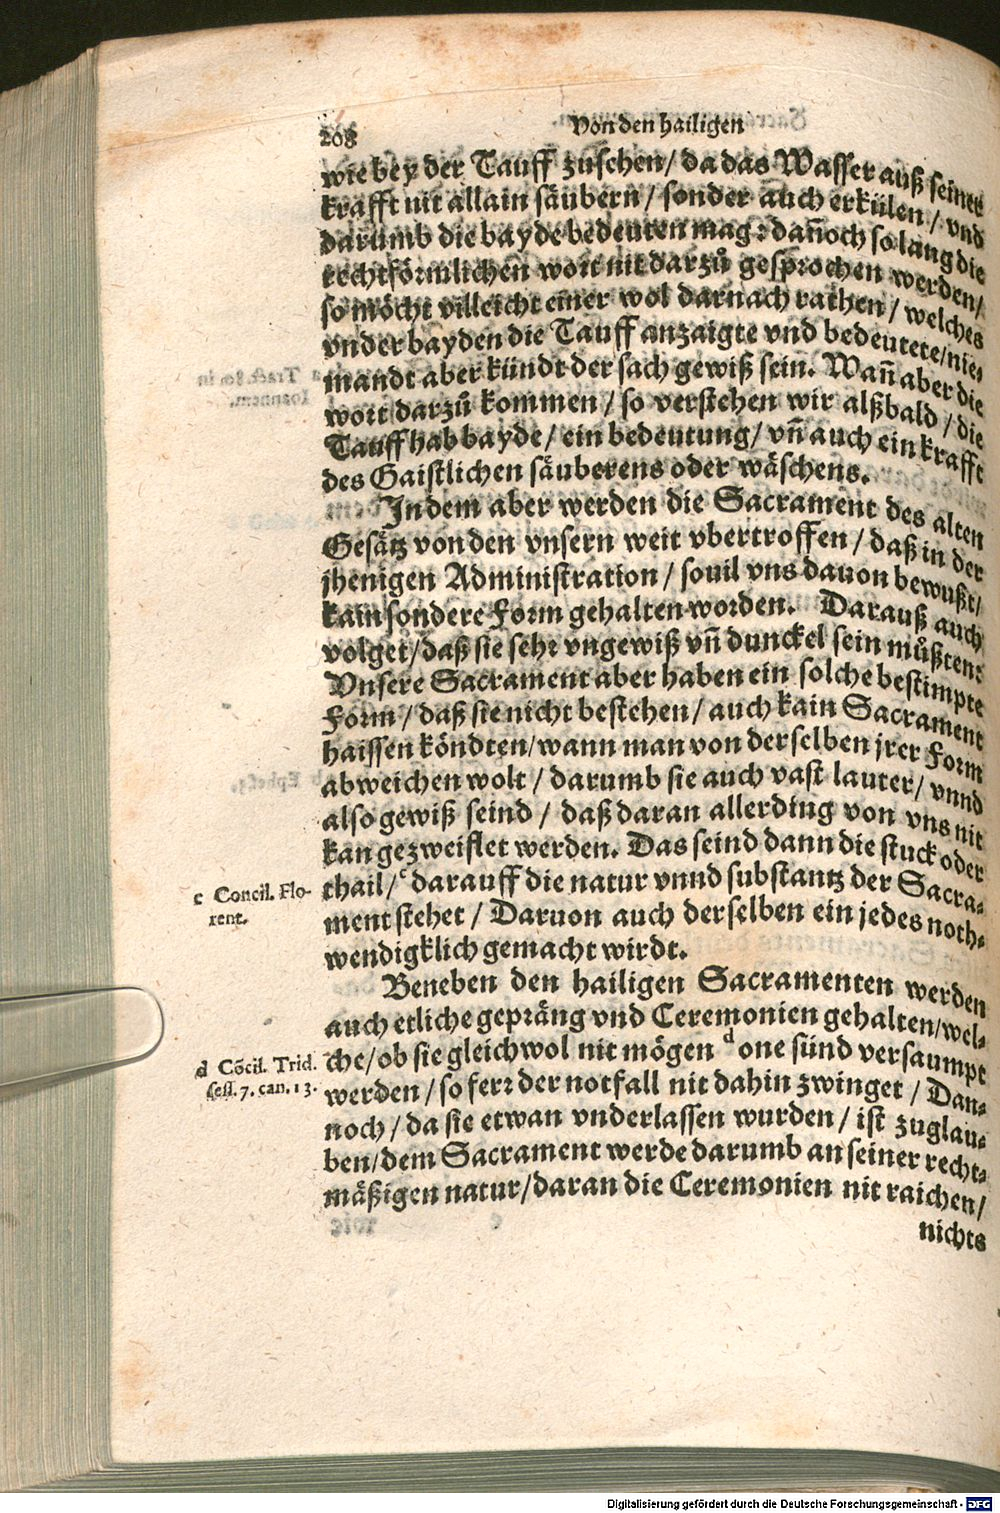 208 Von den hailigen
wie bey der Tauff zusehen/ da das Wasser auß seiner
krafft nit allain säubern/ sonder auch erkülen/ vnd
darumb die bayde bedeuten mag: dañoch so lang die
rechtförmlichen wort nit darzů gesprochen werden/
so möcht villeicht einer wol darnach rathen/ welches
vnder bayden die Tauff anzaigte vnd bedeutete/ nie-
mandt aber kündt der sach gewiß sein. Wañ aber die
wort darzů kommen/ so verstehen wir alßbald/ die
Tauff hab bayde/ ein bedeutung/ vñ auch ein krafft
des Gaistlichen säuberens oder wäschens.
In dem aber werden die Sacrament des alten
Gesätz von den vnsern weit vbertroffen/ daß in der
jhenigen Administration/ souil vns dauon bewußt/
kain sondere Form gehalten worden. Darauß auch
volget/ daß sie sehr vngewiß vñ dunckel sein müßten:
Vnsere Sacrament aber haben ein solche bestimpte
Form/ daß sie nicht bestehen/ auch kain Sacrament
haissen köndten/ wann man von derselben jrer Form
abweichen wolt/ darumb sie auch vast lauter/ vnnd
also gewiß seind/ daß daran allerding von vns nit
kan gezweiflet werden. Das seind dann die stuck oder
thail/ c darauff die natur vnnd substantz der Sacra-
ment stehet/ Daruon auch derselben ein jedes noth-
wendigklich gemacht wirdt.
c Concil. Flo-
rent.
Beneben den hailigen Sacramenten werden
auch etliche gepräng vnd Ceremonien gehalten/ wel-
che/ ob sie gleichwol nit mögen d one sünd versaumpt
werden/ so ferr der notfall nit dahin zwinget/ Dan-
noch/ da sie etwan vnderlassen wurden/ ist zuglau-
ben/ dem Sacrament werde darumb an seiner recht-
mäßigen natur/ daran die Ceremonien nit raichen/
d Cõcil. Trid.
sess. 7. can. 13.
nichts
Digitalisierung gefördert durch die Deutsche Forschungsgemeinschaft - DFG